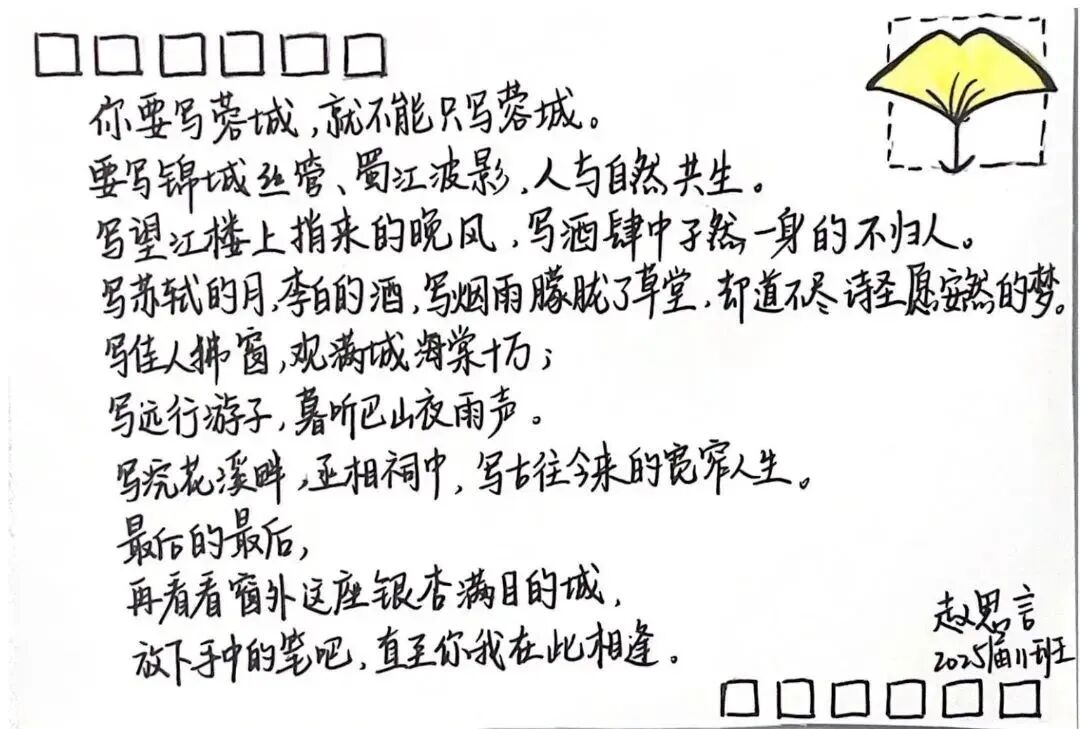 你要写蓉城，就不能只写蓉城。
要写锦城丝管、蜀江波影，人与自然共生。
写望江楼上捎来的晚风，写酒肆中孑然一身的不归人。
写苏轼的月，李白的酒，写烟雨朦胧了草堂，却道不尽诗圣愿安然的梦。
写佳人拂窗，观满城海棠十万；
写远行游子，暮听巴山夜雨声。
写浣花溪畔，丞相祠中，写古往今来的宽窄人生。
最后的最后，
再看看窗外这座银杏满目的城，
放下手中的笔吧，直至你我在此相逢。
赵思言
2025届11班